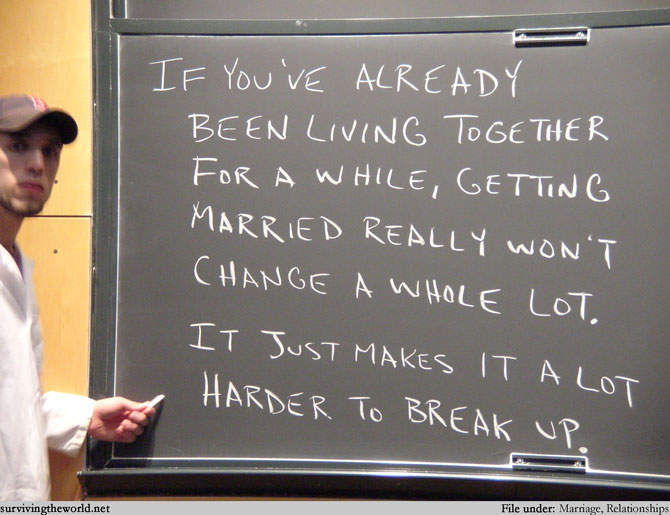 IF YOU'VE ALREADY
BEEN LIVING TOGETHER
FOR A WHILE, GETTING
MARRIED REALLY WON'T
CHANGE A WHOLE LOT.
IT JUST MAKES IT A LOT
HARDER TO BREAK UP.
survivingtheworld.net File under: Marriage, Relationships